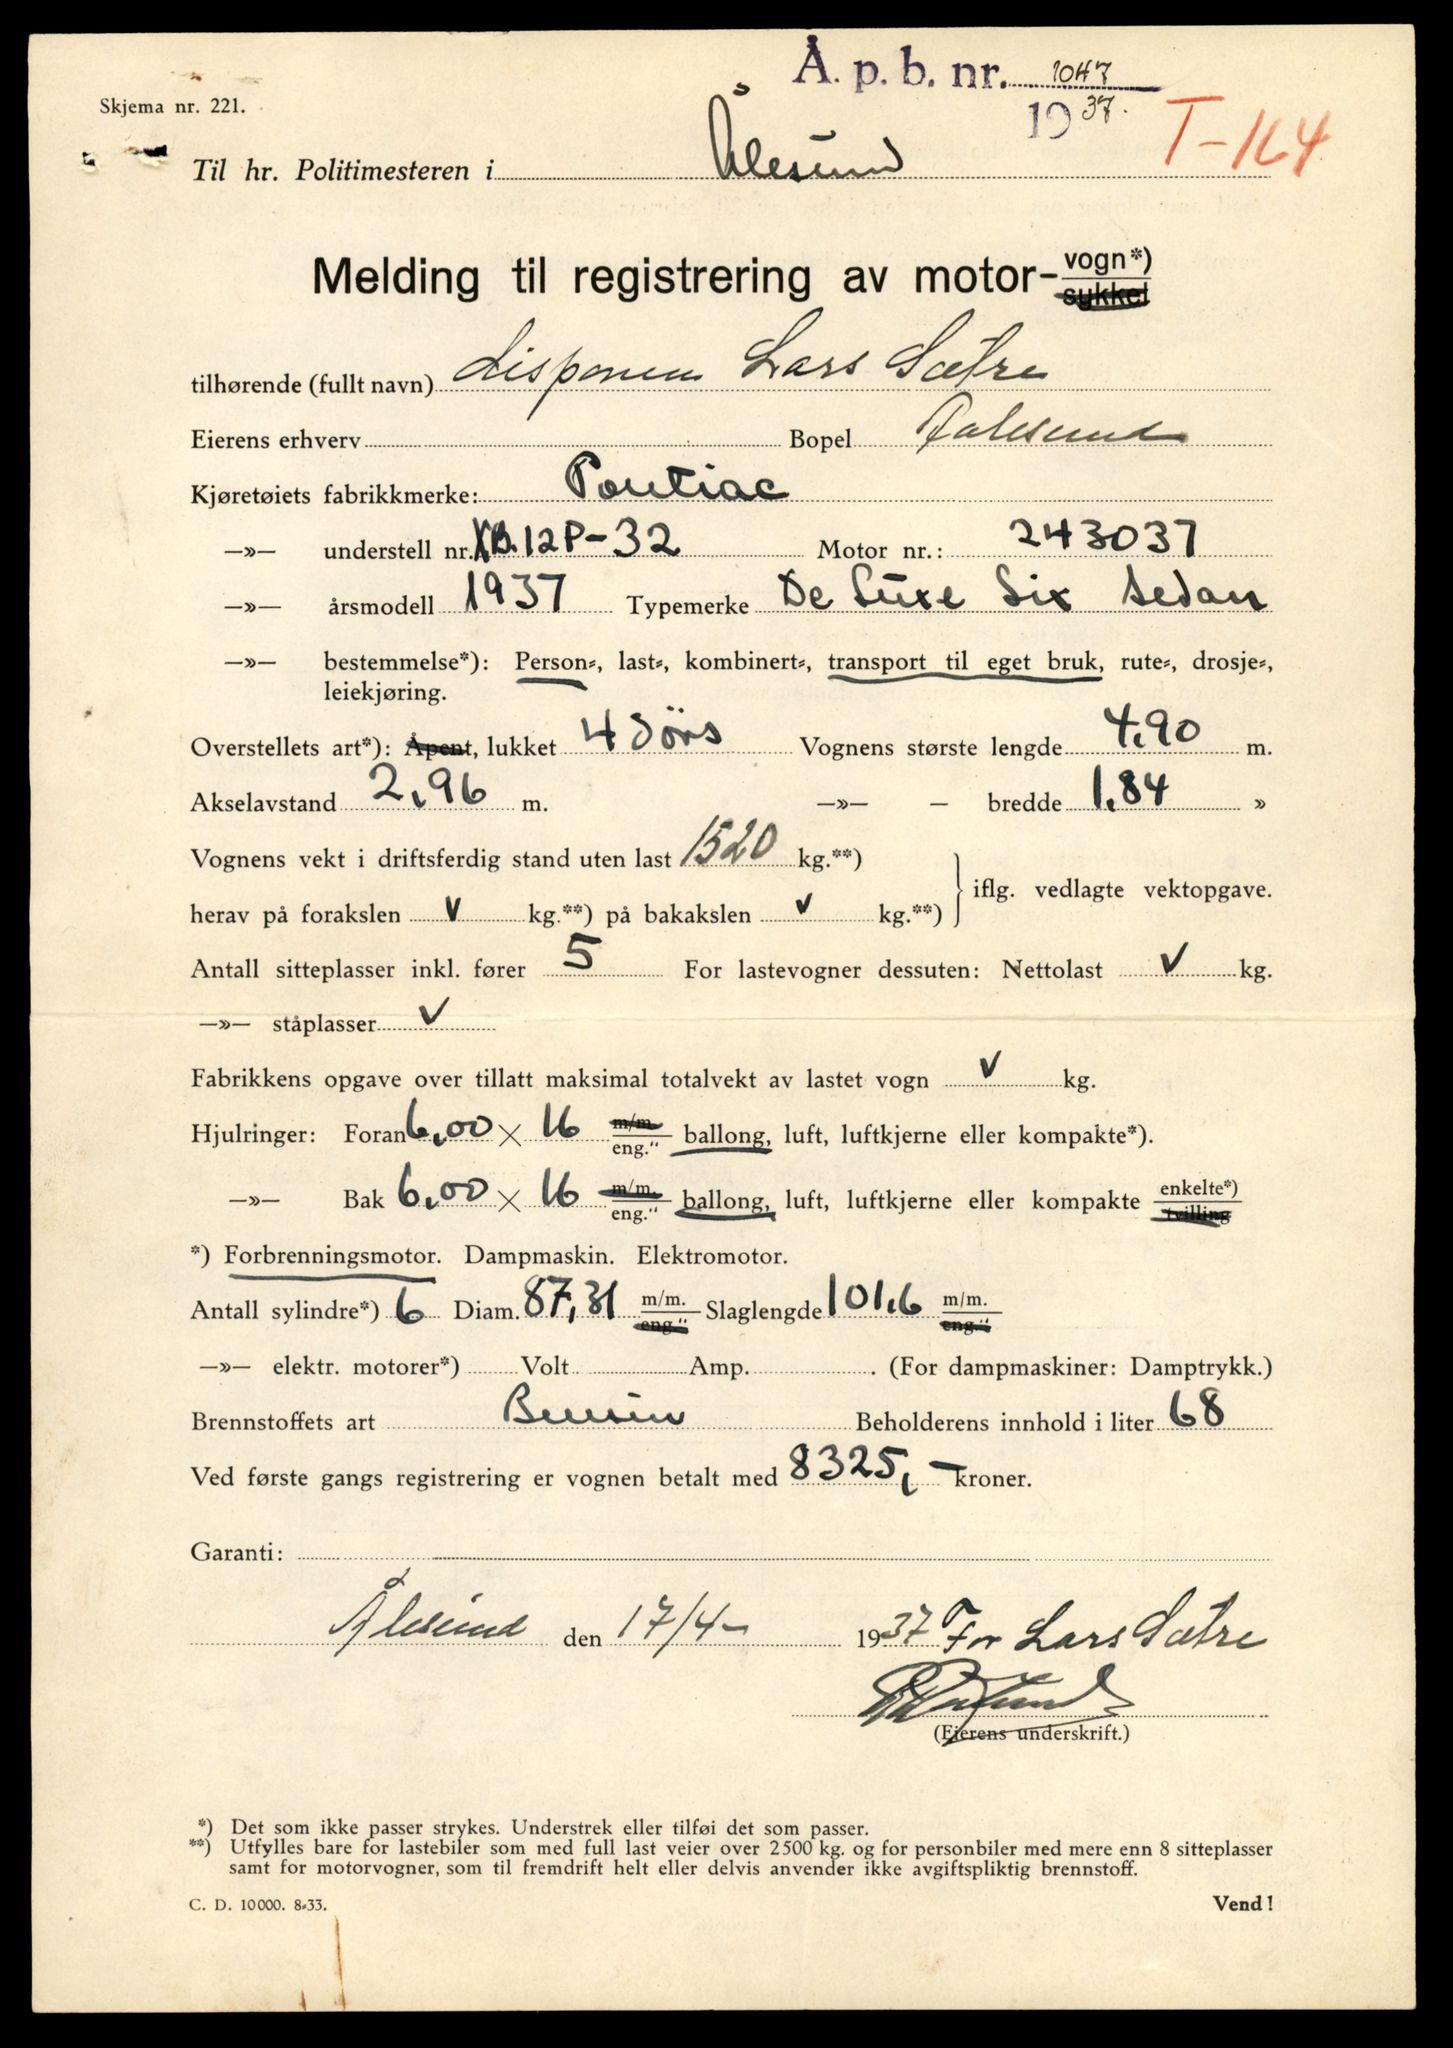 Å. p. b. nr. 1047
1937.
T-164
Skjema nr. 221.
Til hr. Politimesteren i Ålesund
Melding til registrering av motor- vogn*)
sykkel
tilhørende (fullt navn) disponent Lars Sætre
Eierens erhverv Bopel Aalesund
Kjøretøiets fabrikkmerke: Pontiac
—»— understell nr. XB.12P-32 Motor nr.: 243037
—»— årsmodell 1937 Typemerke De Luxe Six Sedan
—»— bestemmelse*): Person-, last-, kombinert-, transport til eget bruk, rute-, drosje-,
leiekjøring.
Overstellets art*): Åpent, lukket 4 dörs Vognens største lengde 4,90 m.
Akselavstand 2,96 m. —»— - bredde 1,84 »
Vognens vekt i driftsferdig stand uten last 1520 kg.**)
herav på forakslen ✓ kg.**) på bakakslen ✓ kg.**) iflg. vedlagte vektopgave.
Antall sitteplasser inkl. fører 5 For lastevogner dessuten: Nettolast ✓ kg.
—»— ståplasser ✓
Fabrikkens opgave over tillatt maksimal totalvekt av lastet vogn ✓ kg.
Hjulringer: Foran 6,00 × 16 m/m. eng." ballong, luft, luftkjerne eller kompakte*).
—»— Bak 6,00 × 16 m/m. eng." ballong, luft, luftkjerne eller kompakte enkelte*) tvilling
*) Forbrenningsmotor. Dampmaskin. Elektromotor.
Antall sylindre*) 6 Diam. 87,31 m/m. eng." Slaglengde 101,6 m/m. eng."
—»— elektr. motorer*) Volt Amp. . (For dampmaskiner: Damptrykk.)
Brennstoffets art Bensin Beholderens innhold i liter 68
Ved første gangs registrering er vognen betalt med 8325,- kroner.
Garanti:
Ålesund den 17/4- 1937 For Lars Sætre
(Eierens underskrift.)
*) Det som ikke passer strykes. Understrek eller tilføi det som passer.
**) Utfylles bare for lastebiler som med full last veier over 2500 kg. og for personbiler med mere enn 8 sitteplasser
samt for motorvogner, som til fremdrift helt eller delvis anvender ikke avgiftspliktig brennstoff.
C. D. 10000. 8-33. Vend!